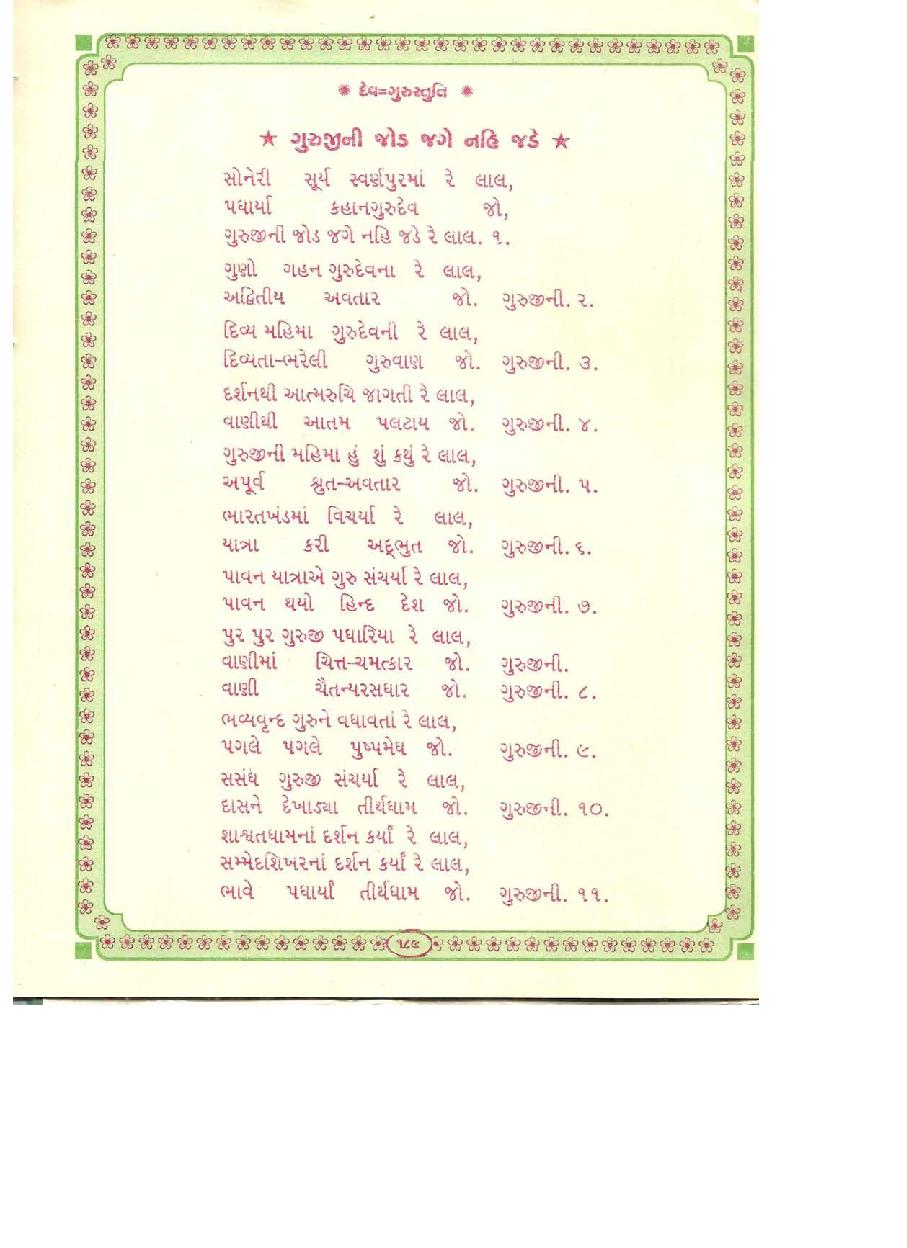 ✹ દેવ=ગુરુસ્તુતિ ✹
★ ગુરુજીની જોડ જગે નહિ જડે ★
સોનેરી સૂર્ય સ્વર્ણપુરમાં રે લાલ,
પધાર્યા કહાનગુરુદેવ જો,
ગુરુજીની જોડ જગે નહિ જડે રે લાલ. ૧.
ગુણો ગહન ગુરુદેવના રે લાલ,
અદ્વિતીય અવતાર જો. ગુરુજીની. ૨.
દિવ્ય મહિમા ગુરુદેવની રે લાલ,
દિવ્યતા-ભરેલી ગુરુવાણ જો. ગુરુજીની. ૩.
દર્શનથી આત્મરુચિ જાગતી રે લાલ,
વાણીથી આતમ પલટાય જો. ગુરુજીની. ૪.
ગુરુજીની મહિમા હું શું કથું રે લાલ,
અપૂર્વ શ્રુત-અવતાર જો. ગુરુજીની. ૫.
ભારતખંડમાં વિચર્યા રે લાલ,
યાત્રા કરી અદ્ભુત જો. ગુરુજીની. ૬.
પાવન યાત્રાએ ગુરુ સંચર્યા રે લાલ,
પાવન થયો હિન્દ દેશ જો. ગુરુજીની. ૭.
પુર પુર ગુરુજી પધારિયા રે લાલ,
વાણીમાં ચિત્ત-ચમત્કાર જો. ગુરુજીની.
વાણી ચૈતન્યરસધાર જો. ગુરુજીની. ૮.
ભવ્યવૃન્દ ગુરુને વધાવતાં રે લાલ,
પગલે પગલે પુષ્પમેઘ જો. ગુરુજીની. ૯.
સસંઘ ગુરુજી સંચર્યા રે લાલ,
દાસને દેખાડ્યા તીર્થધામ જો. ગુરુજીની. ૧૦.
શાશ્વતધામનાં દર્શન કર્યાં રે લાલ,
સમ્મેદશિખરનાં દર્શન કર્યાં રે લાલ,
ભાવે પધાર્યા તીર્થધામ જો. ગુરુજીની. ૧૧.
૧૮૯